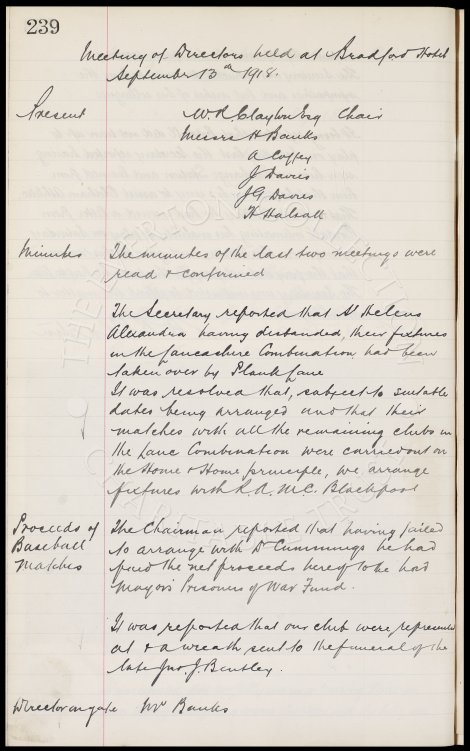 239
Meeting of Directors held at Bradford Hotel
September 13th 1918.
Present W.R. Clayton Esq Chair
Messrs H Banks
A Coffey
J Davies
J G Davies
H Halsall
Minutes The minutes of the last two meetings were
read & confirmed
The Secretary reported that St Helens
Alexandra having disbanded, their fixtures
in the Lancashire Combination had been
taken over by Plank Lane
It was resolved that, subject to suitable
dates being arranged and that their
matches with all the remaining clubs in
the Lanc Combination were carried out on
the Home & Home principle, we arrange
fixtures with R.A.M.C. Blackpool
Proceeds of The Chairman reported that having failed
Baseball to arrange with Dr Cummings he had
Matches paid the net proceeds hereof to the Lord
Mayor's Prisoners of War Fund.
It was reported that our club were represented
at & a wreath sent to the funeral of the
late Jno. J. Bentley.
Director on gate Mr Banks
THE EVERTON COLLECTION
CHARITABLE TRUST